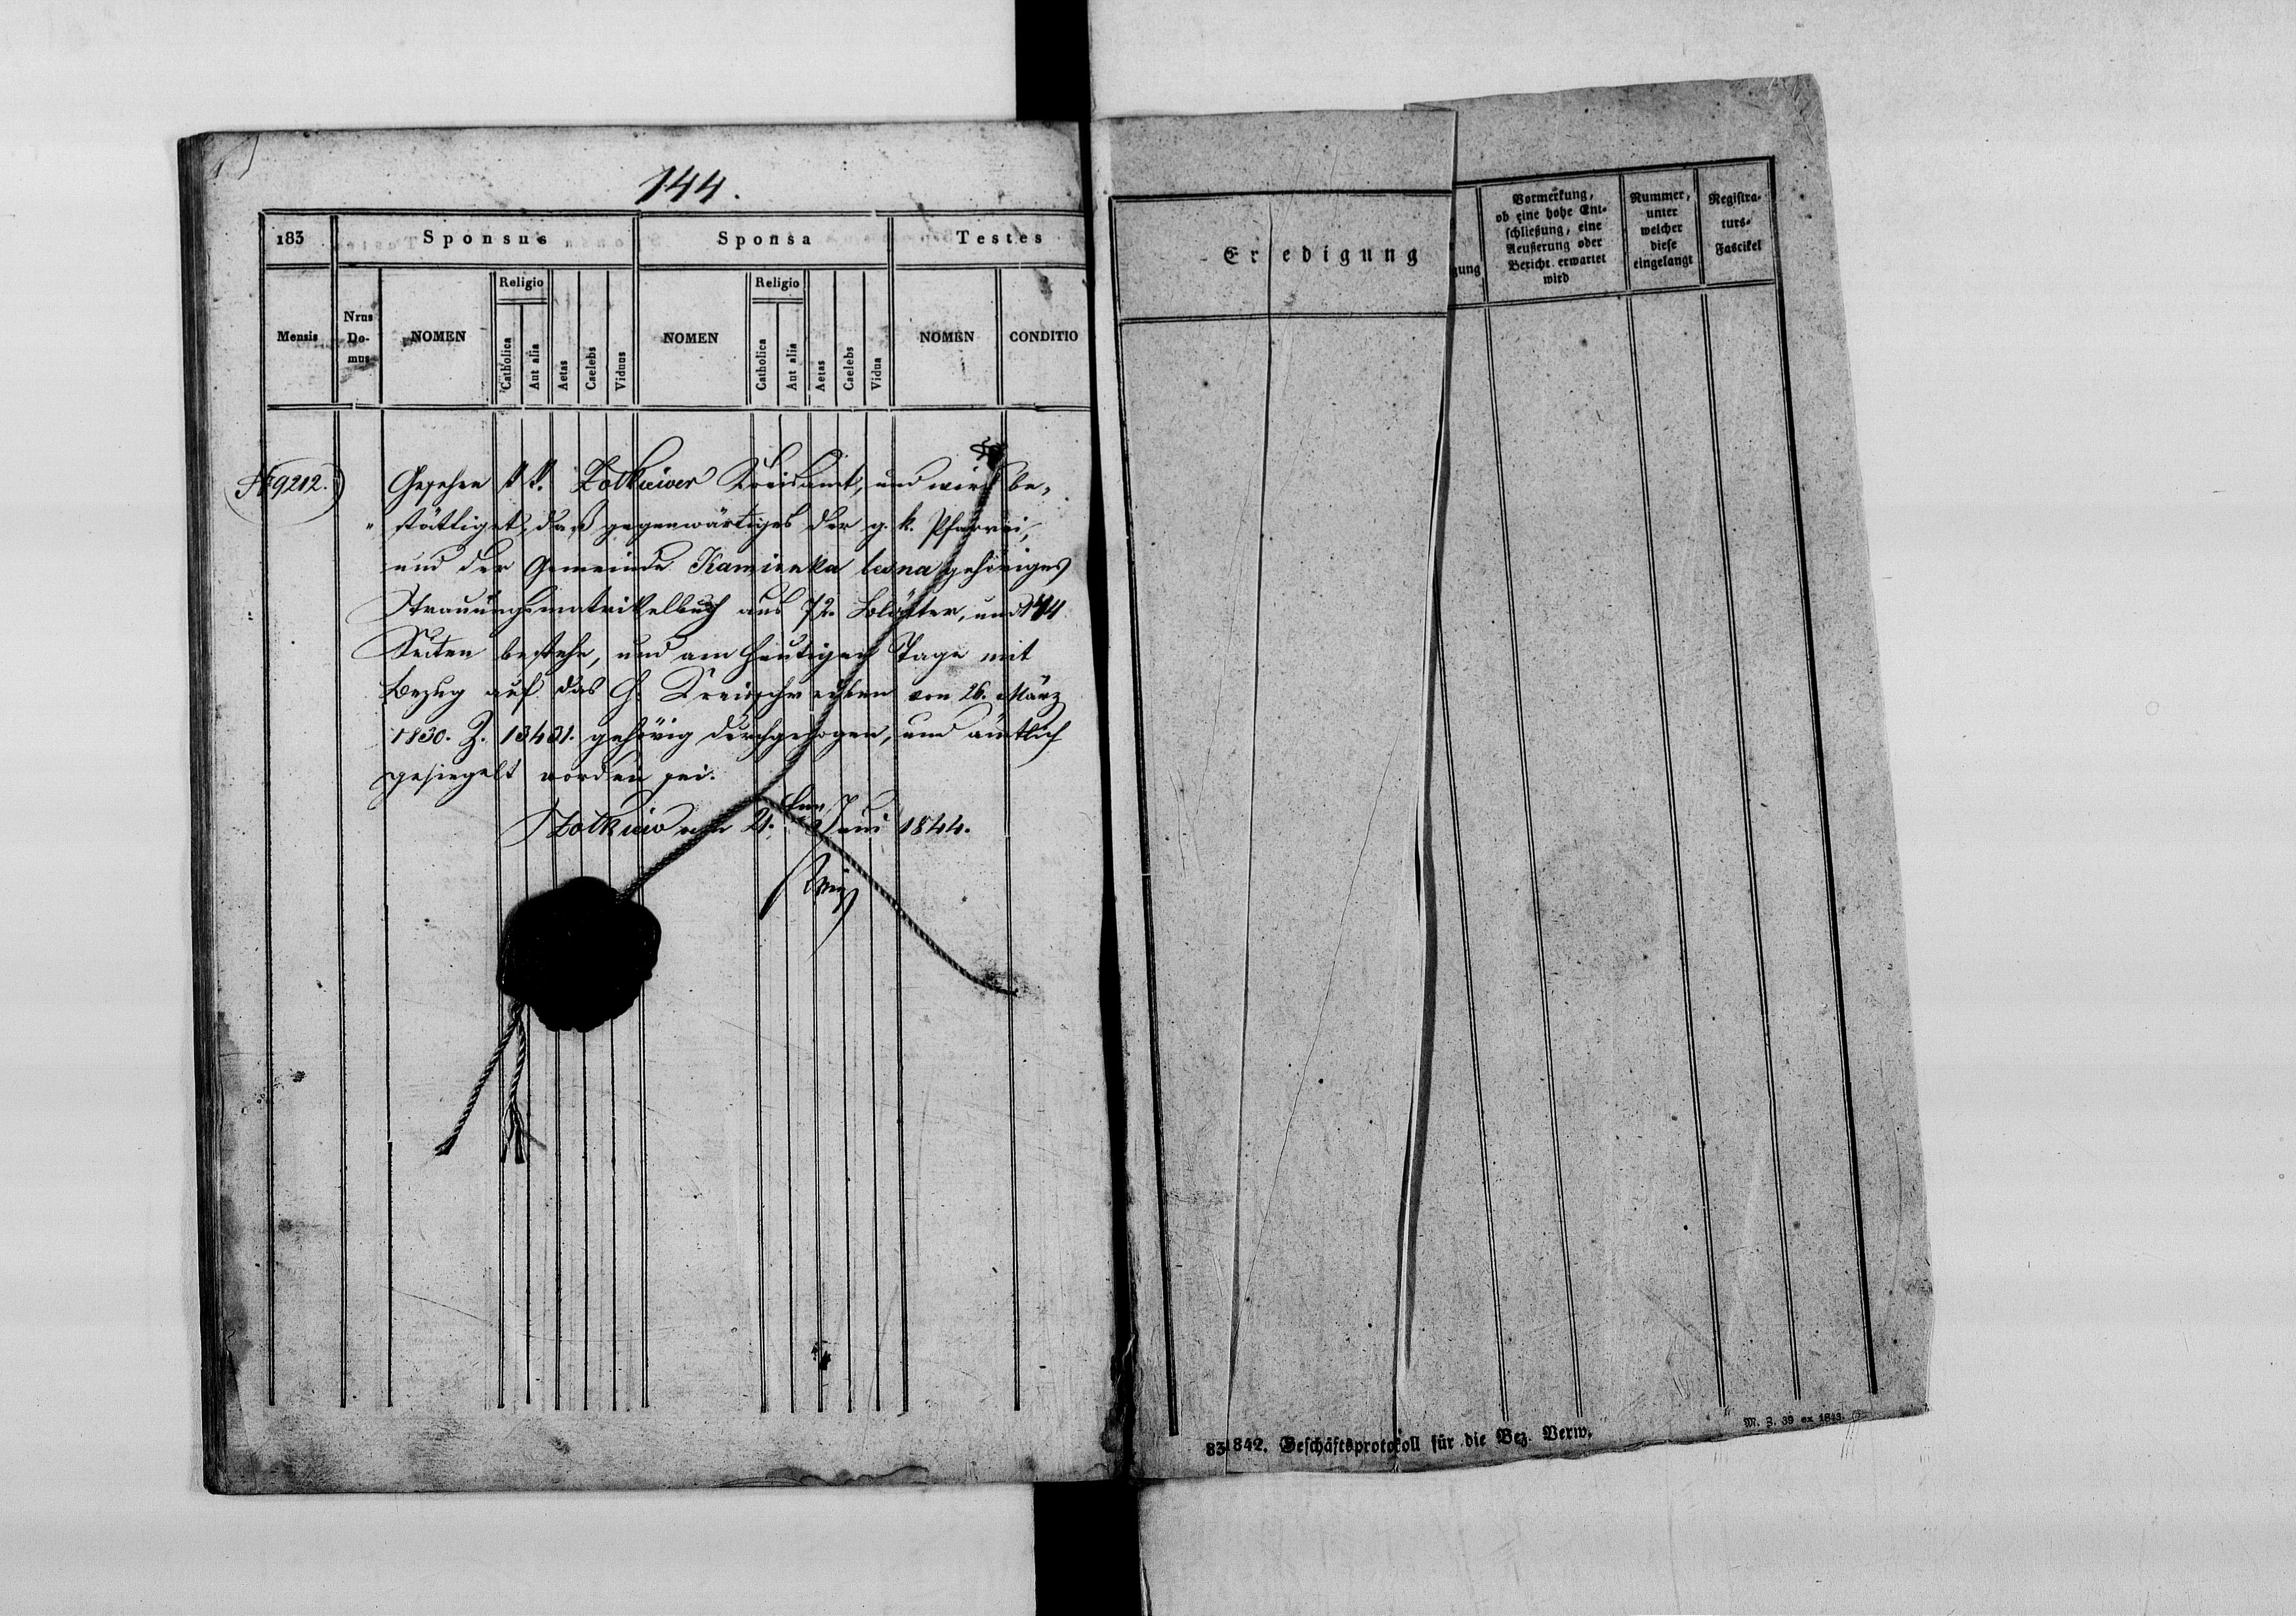 144.
183
Sponsus
Sponsa
Testes
Mensis
Nrus
Do-
mus
NOMEN
Religio
Catholica
Aut alia
Aetas
Caelebs
Viduus
NOMEN
Religio
Catholica
Aut alia
Aetas
Caelebs
Vidua
NOMEN
CONDITIO
Nr 9212.
Gesehen Zolkiewer Kreisamt, und wird be„
„stättiget, daß gegenwärtiges der g. k. Pfarrei,
und der Gemeinde Kamienka lesna gehöriges
Trauungsmatrikelbuch aus 72 Blätter, und 144
Seiten bestehe, und am heutigen Tage mit
Bezug auf das h. Kreisschreiben von 26. März
1830. Z. 13431. gehörig durchgezogen, und ämtlich
gesiegelt worden sei.
Zolkiew am Juni 1844.
Erledigung
gung
Vormerkung,
ob eine hohe Ent-
schließung, eine
Aeußerung oder
Bericht erwartet
wird
Nummer,
unter
welcher
diese
eingelangt
Registra-
turs-
Fascikel
83
842. Geschäftsprotokoll für die Bez. Verw.
M. Z. 39 ex 1843.